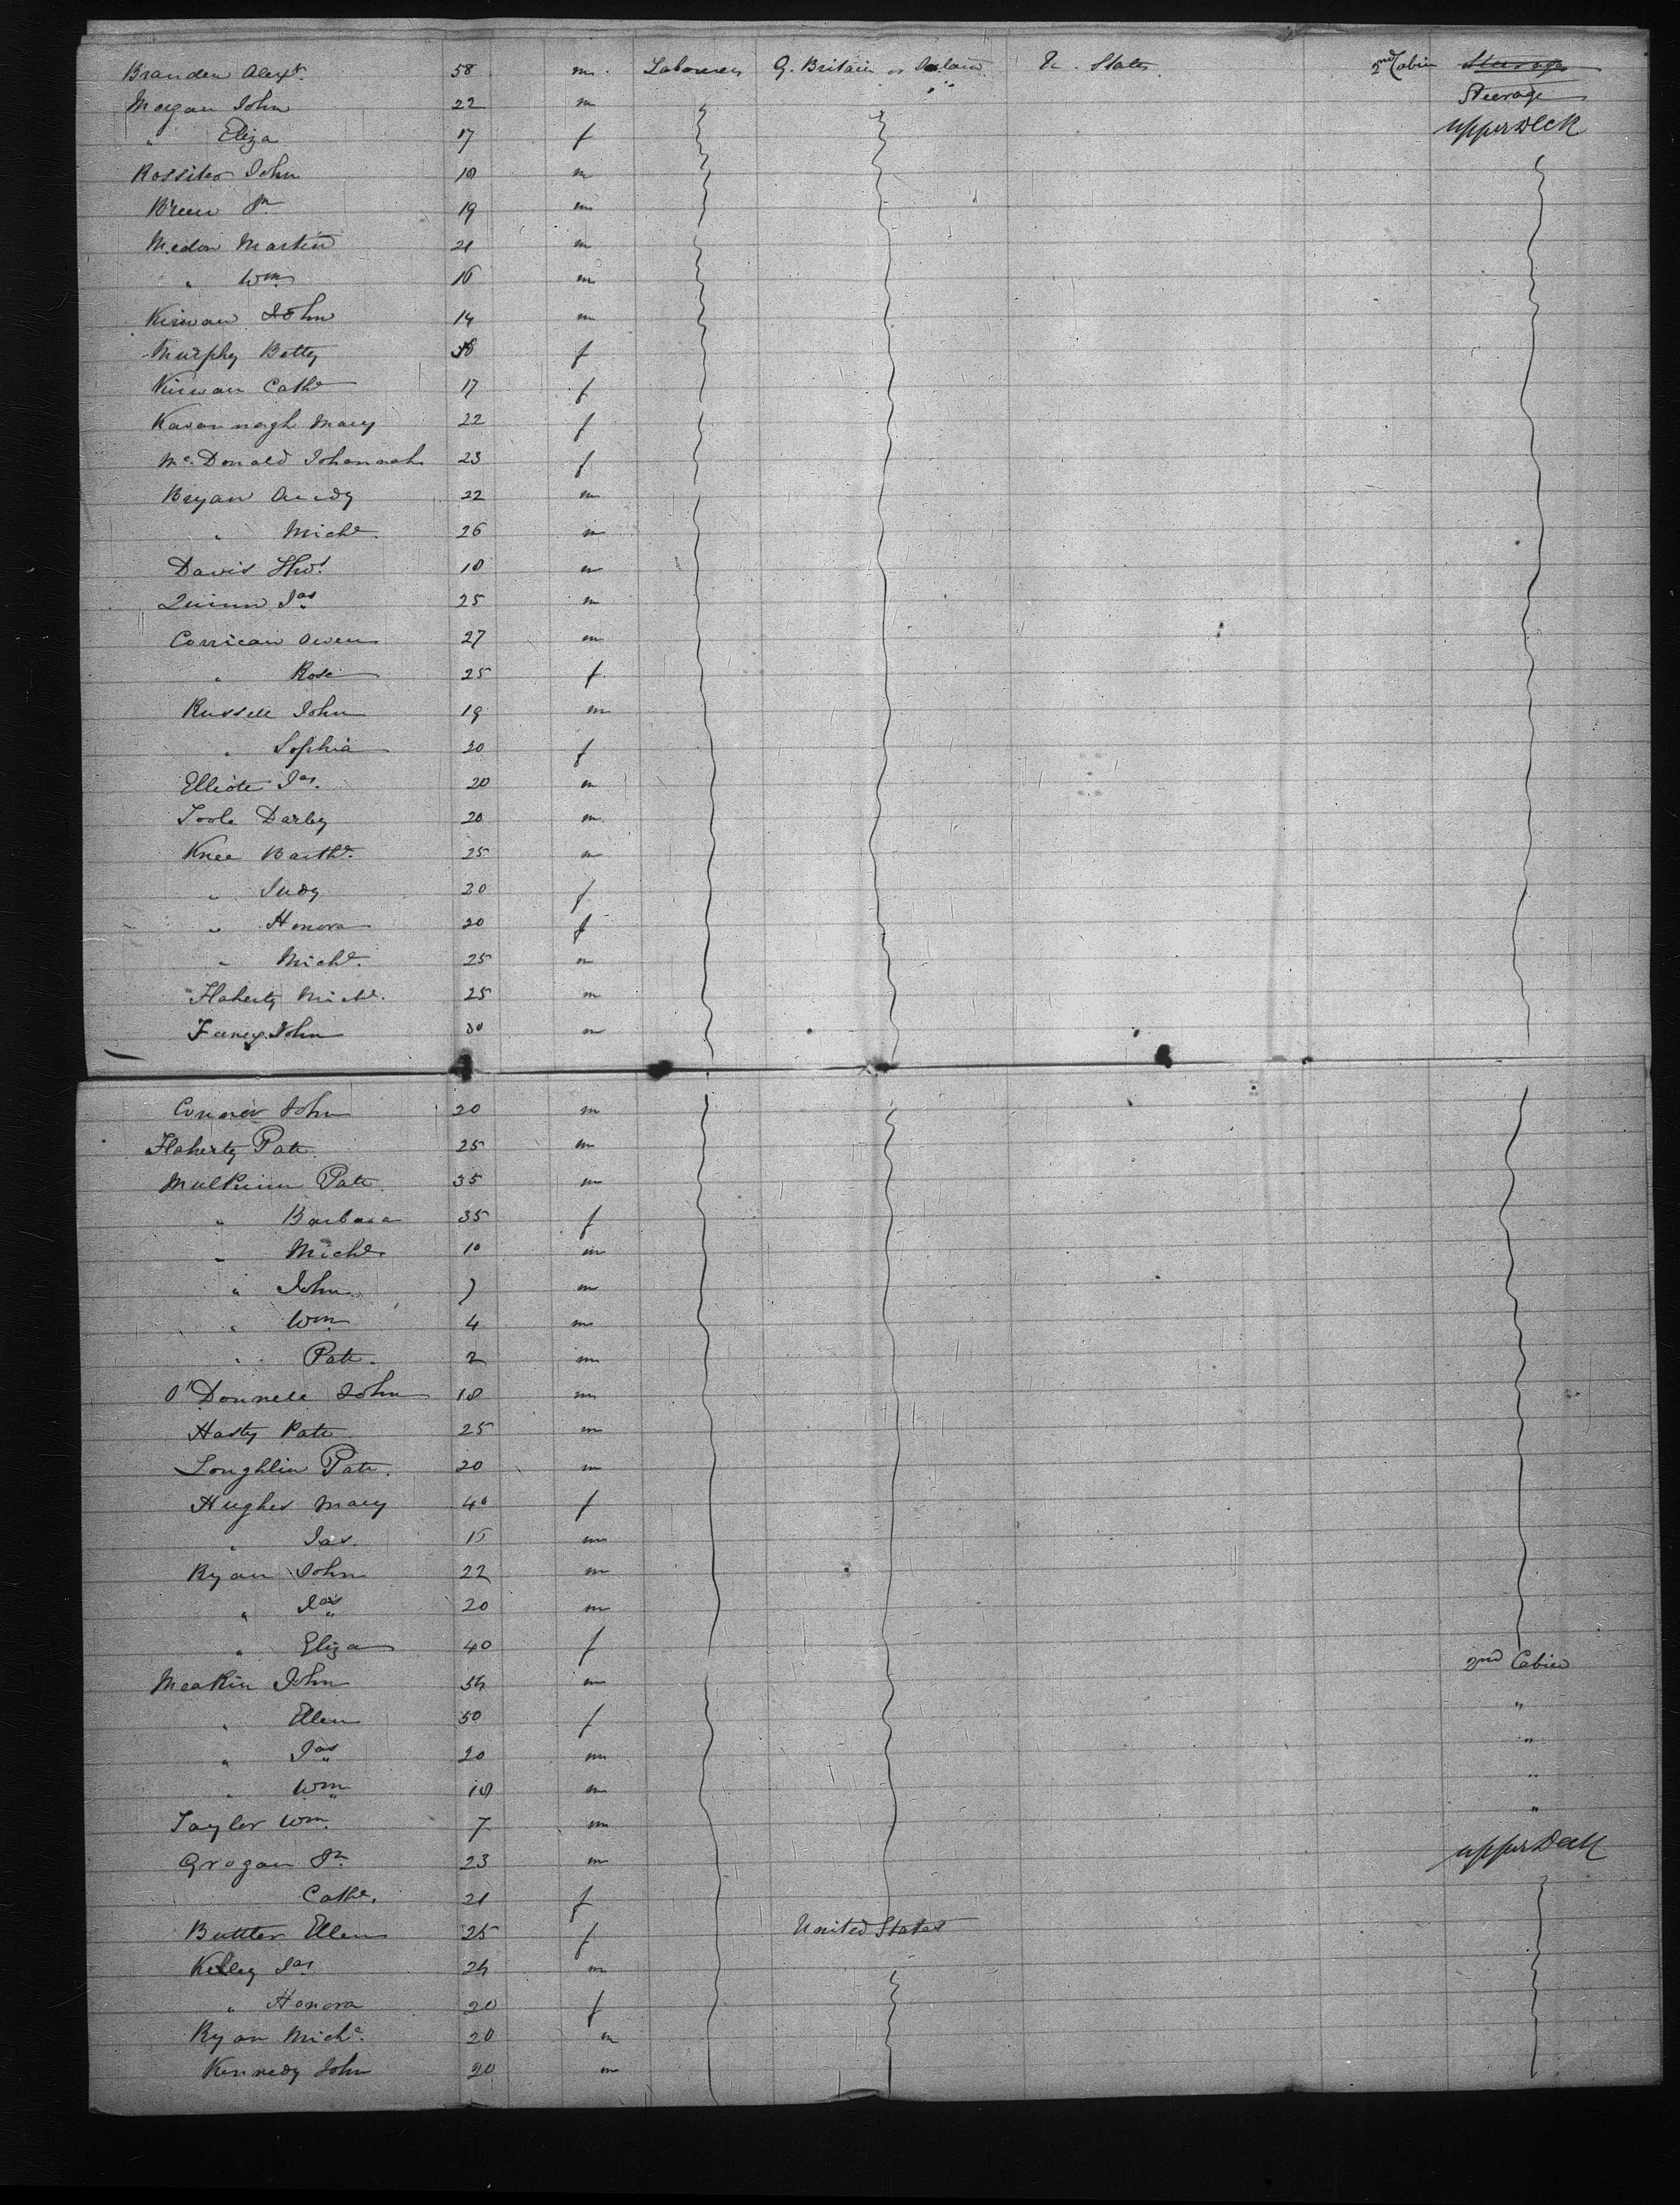 Branden Alexr. 58 m. Labourers G. Britain or Ireland U. States 2nd Cabin Steerage
Morgan John 22 m Steerage
" Eliza 17 f upper deck
Rossiter John 18 m
Breen Jn 19 m
Medon Martin 21 m
" Wm 16 m
Kirwan John 14 m
Murphy Betty 38 f
Kirwan Cathe 17 f
Kavannagh Mary 22 f
Mc. Donald Johannah 23 f
Bryan Andy 22 m
" Michl. 26 m
Davis Thos. 18 m
Quinn Jas 25 m
Corrican Owen 27 m
" Rose 25 f
Russell John 19 m
" Sophia 20 f
Elliote Jas. 20 m
Toole Darby 20 m
Knee Barthw. 25 m
" Judy 20 f
" Honora 20 f
" Michl. 25 m
Flaherty Michl. 25 m
Feeney John 30 m
Connor John 20 m
Flaherty Patk. 25 m
Mulkinn Patk. 35 m
" Barbara 35 f
" Michl. 10 m
" John 7 m
" Wm 4 m
" Patk. 2 m
O'Donnell John 18 m
Hasty Patk 25 m
Loughlin Patk. 20 m
Hughes Mary 40 f
" Jas. 15 m
Ryan John 22 m
" Jas 20 m
" Eliza 40 f
Meakin John 54 m 2nd Cabin
" Ellen 50 f "
" Jas 20 m "
" Wm 18 m "
Tayler Wm. 7 m "
Grogan Jn. 23 m upper Deck
Cathe. 21 f
Buttler Ellen 25 f United States
Kelley Jas 24 m
" Honora 20 f
Ryan Michl. 20 m
Kennedy John 20 m